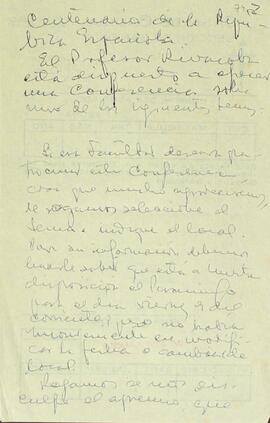 Centenario de la Repú-
blica Española.
El Profesor Rivacoba
está dispuesto a ofrecer
una Conferencia sobre
uno de los siguientes temas
Si esa Facultad desea pa-
trocinar esta Conferencia
cosa que mucho agradeceríamos,
le rogamos seleccione el
tema e indique el local.
Para su información debemos
hacerle saber que está a nuestra
disposición el Paraninfo
para el día viernes 9 del
corriente, pero no habría
inconveniente en modifi-
car la fecha o cambiar de
local.
Rogamos se nos dis-
culpe el apremio, que